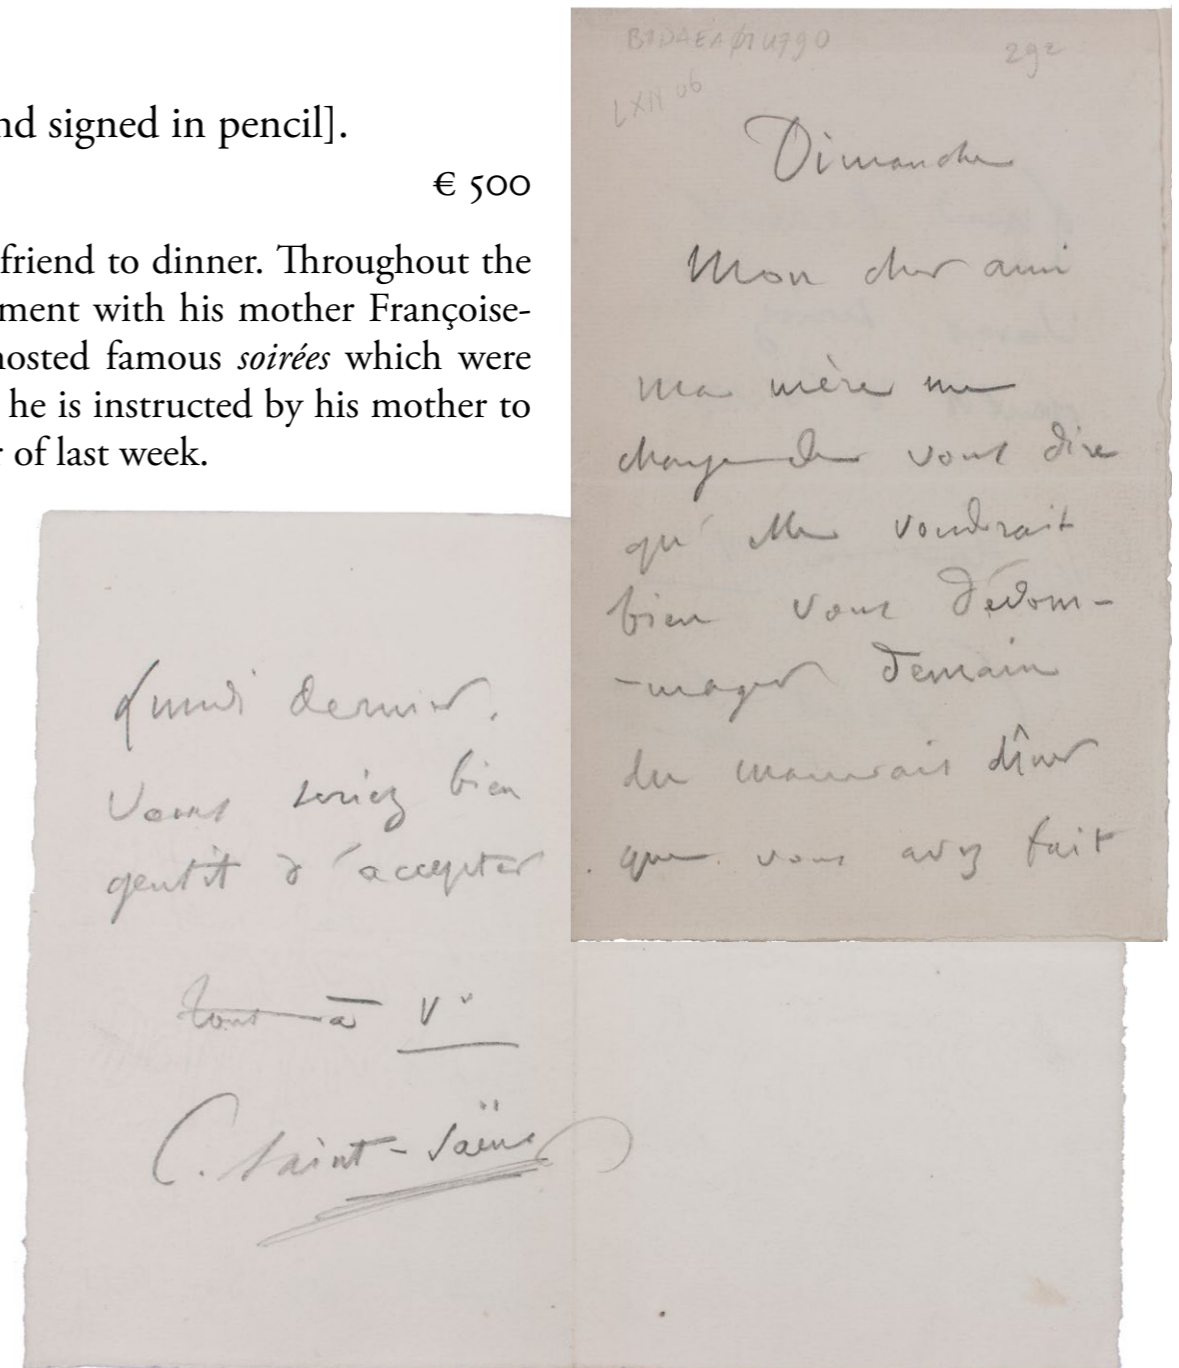 nd signed in pencil].
€ 500
friend to dinner. Throughout the
ment with his mother Françoise-
hosted famous soirées which were
he is instructed by his mother to
of last week.
292
Dimanche
Mon cher ami
ma mère me
charge de vous dire
qu'elle voudrait
bien vous dédom-
-mager demain
du mauvais dîner
que vous avez fait
Lundi dernier.
Vous seriez bien
gentil d'accepter
tout à V
C. Saint-Saëns